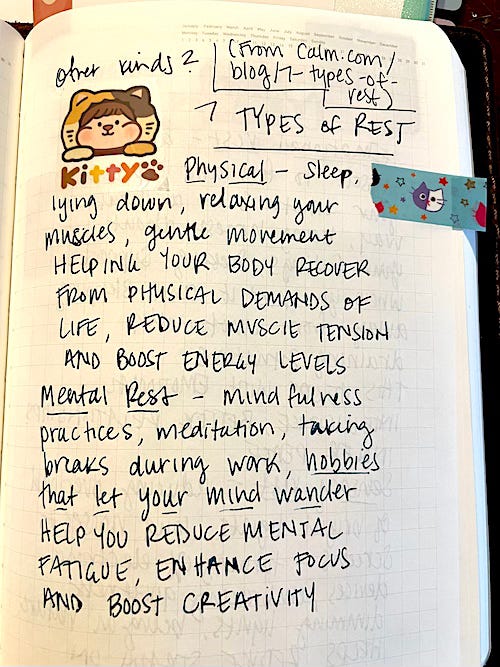 other kinds?
(From Calm.com/
blog/7-types-of-
rest)
7 TYPES of REST
Kitty
Physical - Sleep,
lying down, relaxing your
muscles, gentle movement
HELPING YOUR BODY RECOVER
FROM PHYSICAL DEMANDS OF
LIFE, REDUCE MUSCLE TENSION
AND BOOST ENERGY LEVELS
Mental Rest - mindfulness
practices, meditation, taking
breaks during work, hobbies
that let your mind wander
HELP YOU REDUCE MENTAL
FATIGUE, ENHANCE FOCUS
AND BOOST CREATIVITY